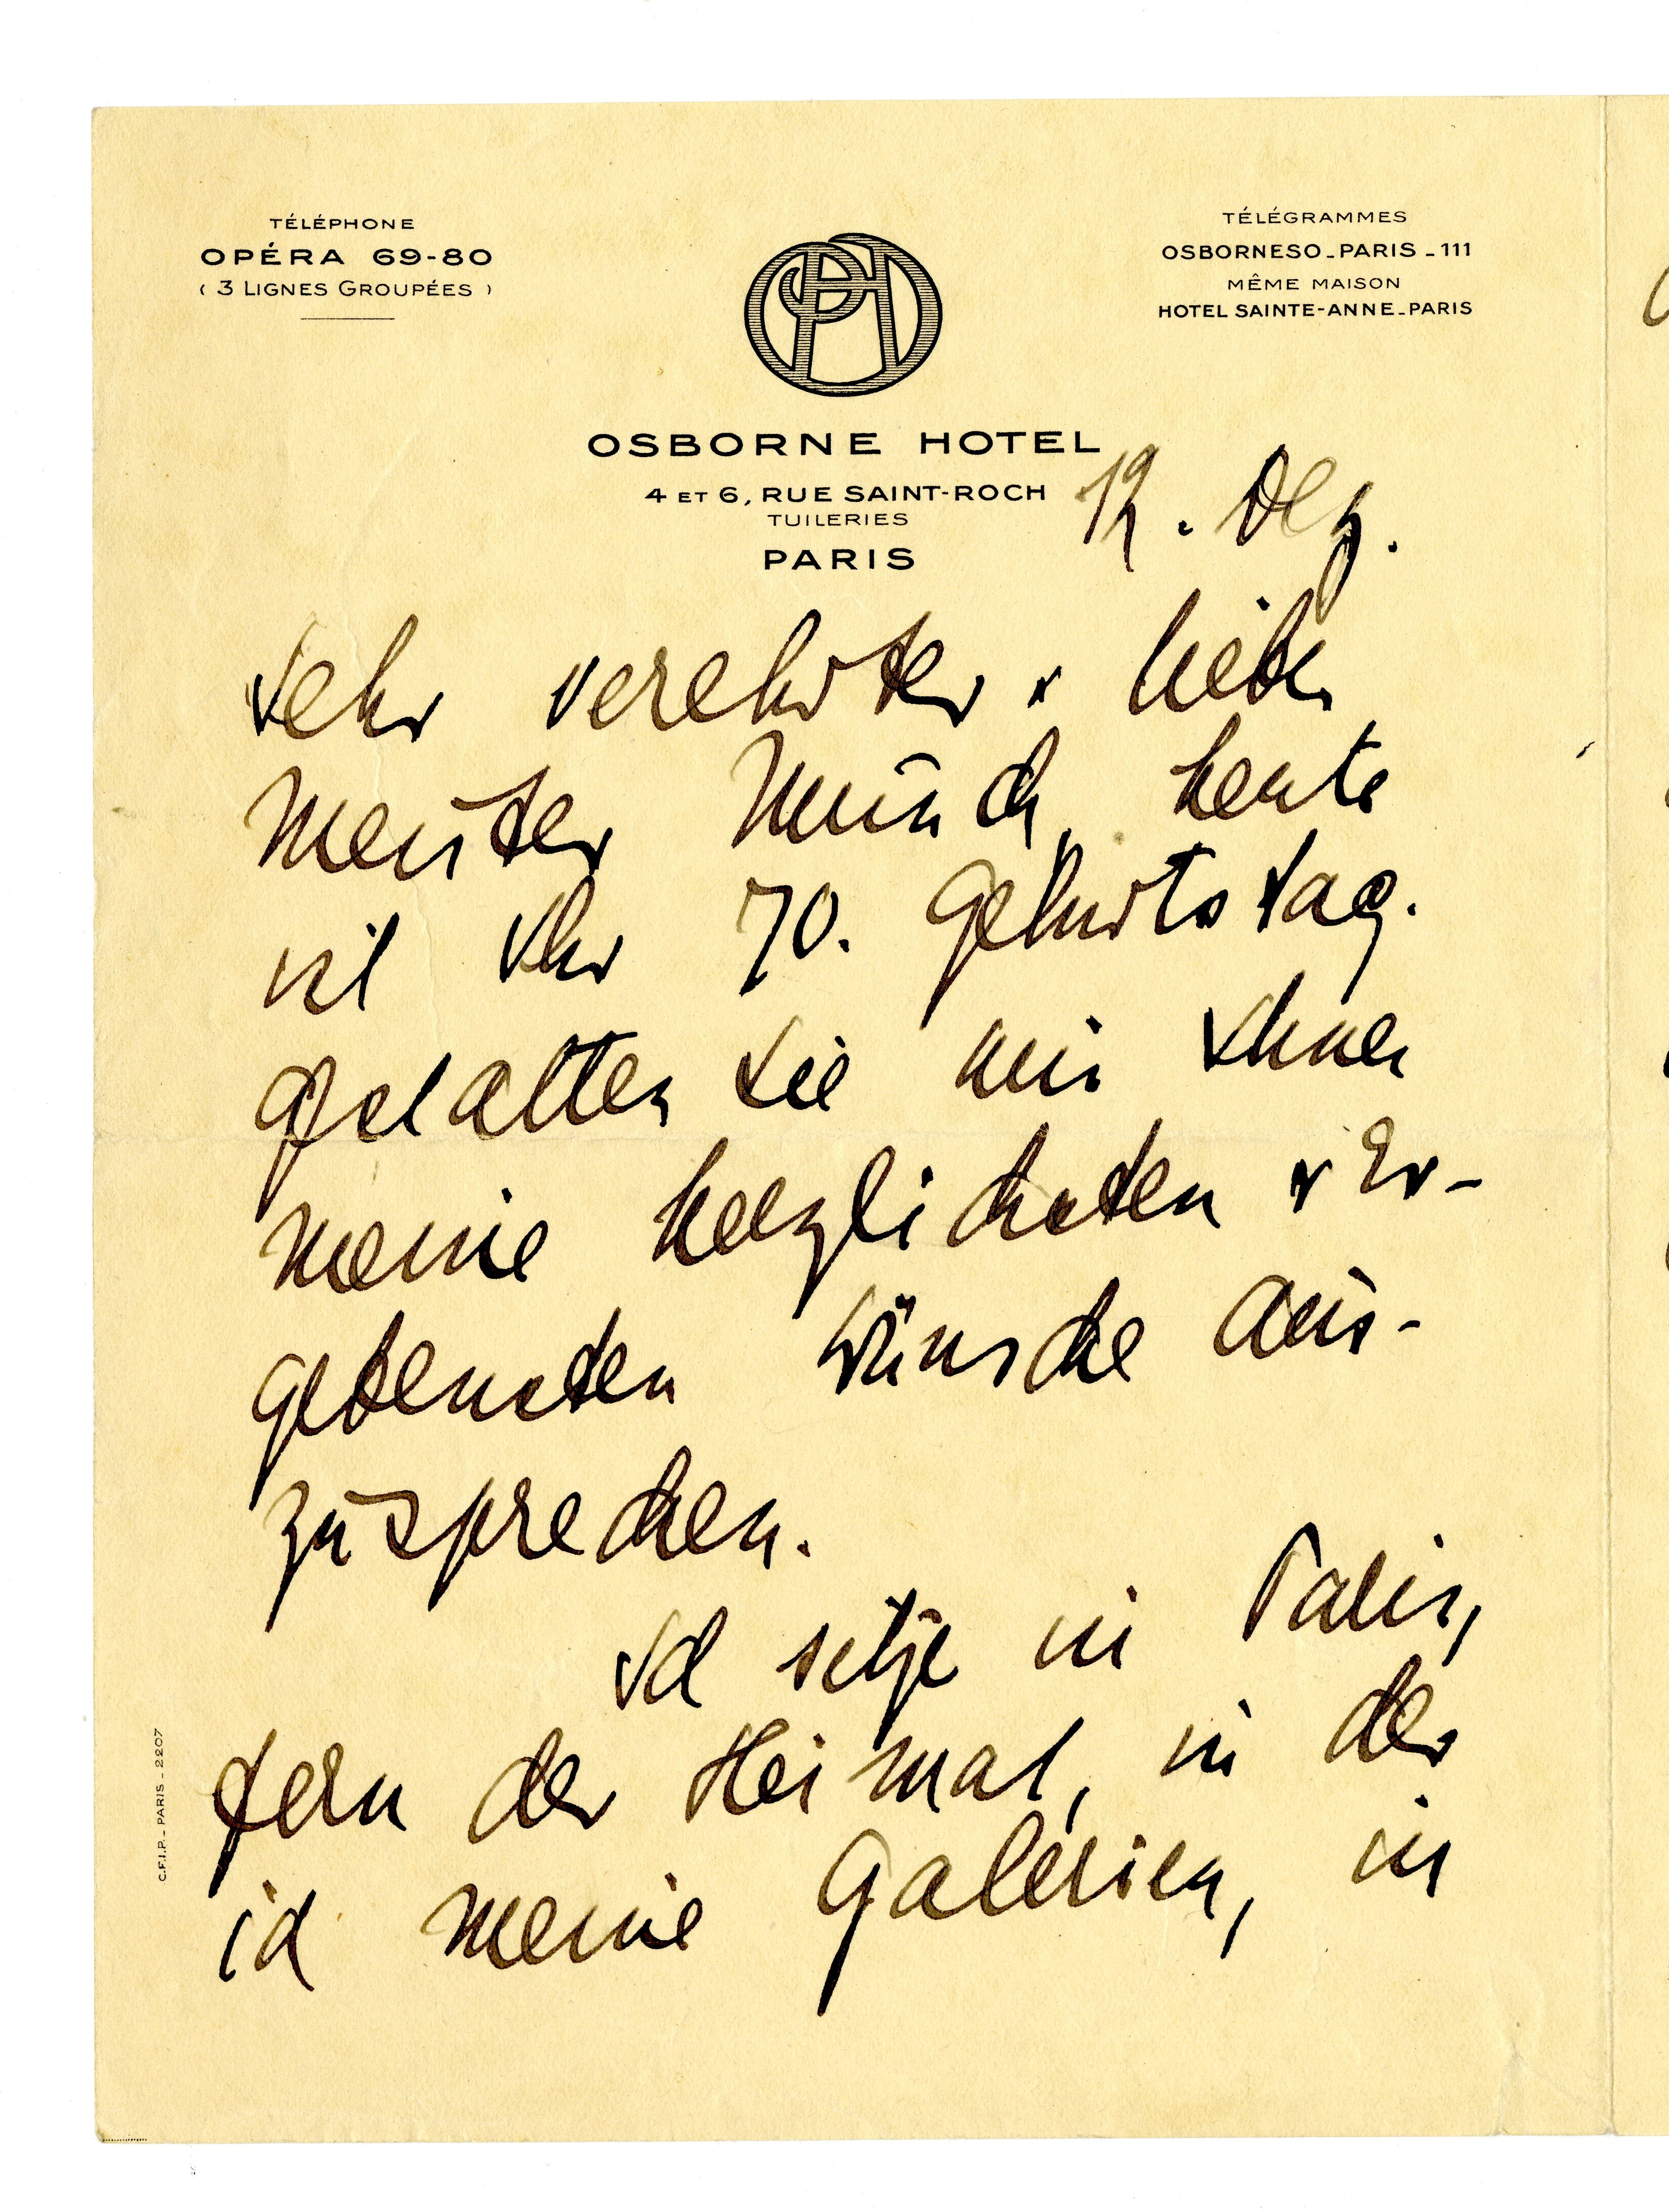 TÉLÉPHONE
OPÉRA 69-80
( 3 LIGNES GROUPÉES )
TÉLÉGRAMMES
OSBORNESO_PARIS_111
MÊME MAISON
HOTEL SAINTE-ANNE_PARIS
OSBORNE HOTEL
4 ET 6, RUE SAINT-ROCH
TUILERIES
PARIS
12. Dez.
Sehr verehrter + lieber
Meister Munch, heute
ist Ihr 70. Geburtstag.
Gestatten Sie mir Ihnen
meine herzlichsten + Er-
gebensten Wünsche aus-
zusprechen.
Ich sitze in Paris,
fern der Heimat, in der
ich meine Galerien, in
C.F.I.P._PARIS_2207